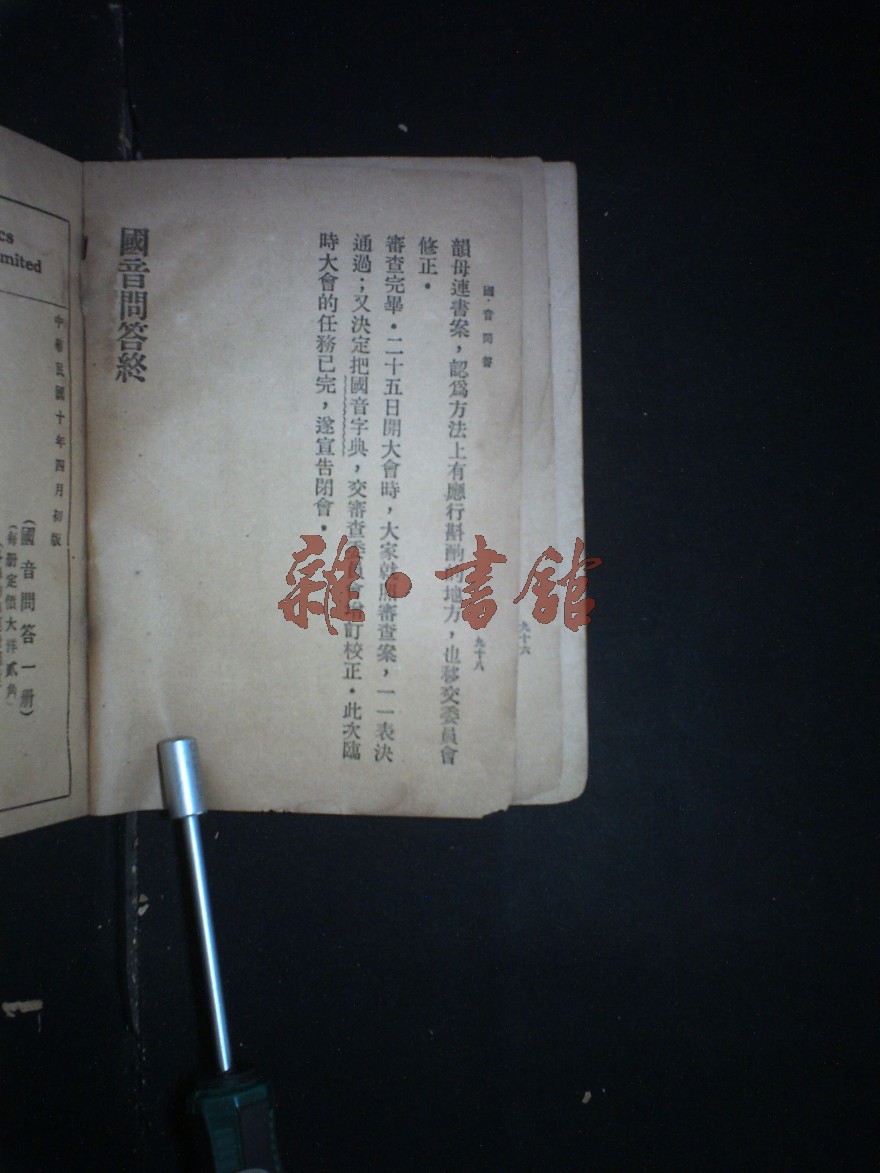 國音問答
九十八
韻母連書案，認爲方法上有應行斟酌的地方，也移交委員會
修正．
審查完畢．二十五日開大會時，大家就照審查案，一一表決
通過；又決定把國音字典，交審查委員會增訂校正．此次臨
時大會的任務已完，遂宣告閉會．
國音問答終
九十六
雜·書館
cs
mited
中華民國十年四月初版
（國音問答一册）
（每册定價大洋貳角）